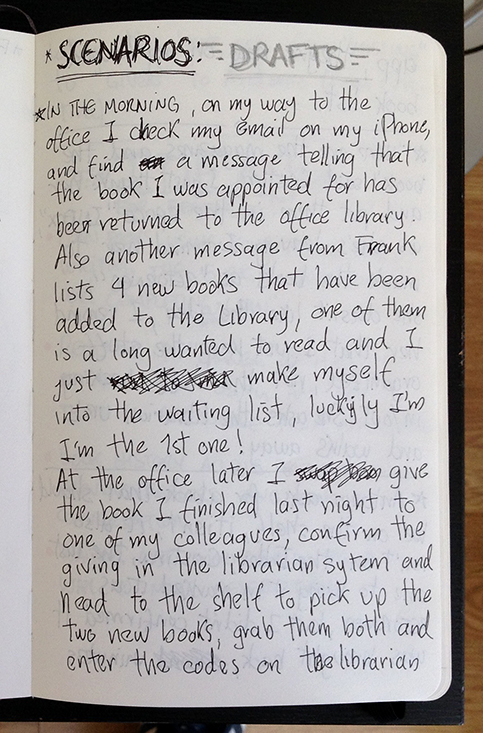 * SCENARIOS: = DRAFTS =
* IN THE MORNING, on my way to the
office I check my email on my iPhone,
and find a message telling that
the book I was appointed for has
been returned to the office library
Also another message from Frank
lists 4 new books that have been
added to the Library, one of them
is a long wanted to read and I
just make myself
into the waiting list, luckyly I'm
I'm the 1st one!
At the office later I give
the book I finished last night to
one of my colleagues, confirm the
giving in the librarian sytem and
head to the shelf to pick up the
two new books, grab them both and
enter the codes on the librarian